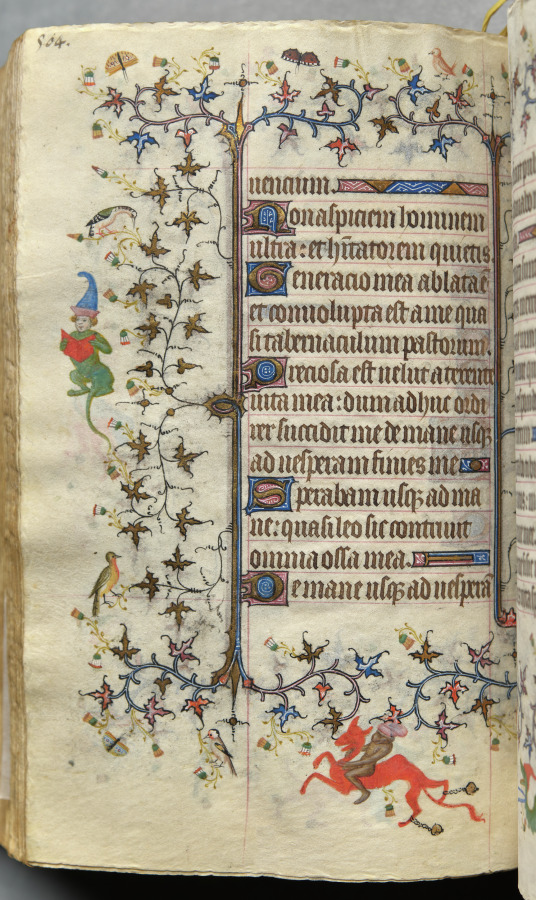 504.
uencium.
Non aspiciem hominem
ultra: et hītatorem quietis
Generacio mea ablata ē
et conuoluta est a me qua
si tabernaculum pastorum.
Preciosa est uelut a texente
uita mea: dum adhuc ordi
rer succidit me de mane usqꝫ
ad uesperam finies me
Sperabam usqꝫ ad ma
ne: quasi leo sic contriuit
omnia ossa mea.
De mane usqꝫ ad uesperā